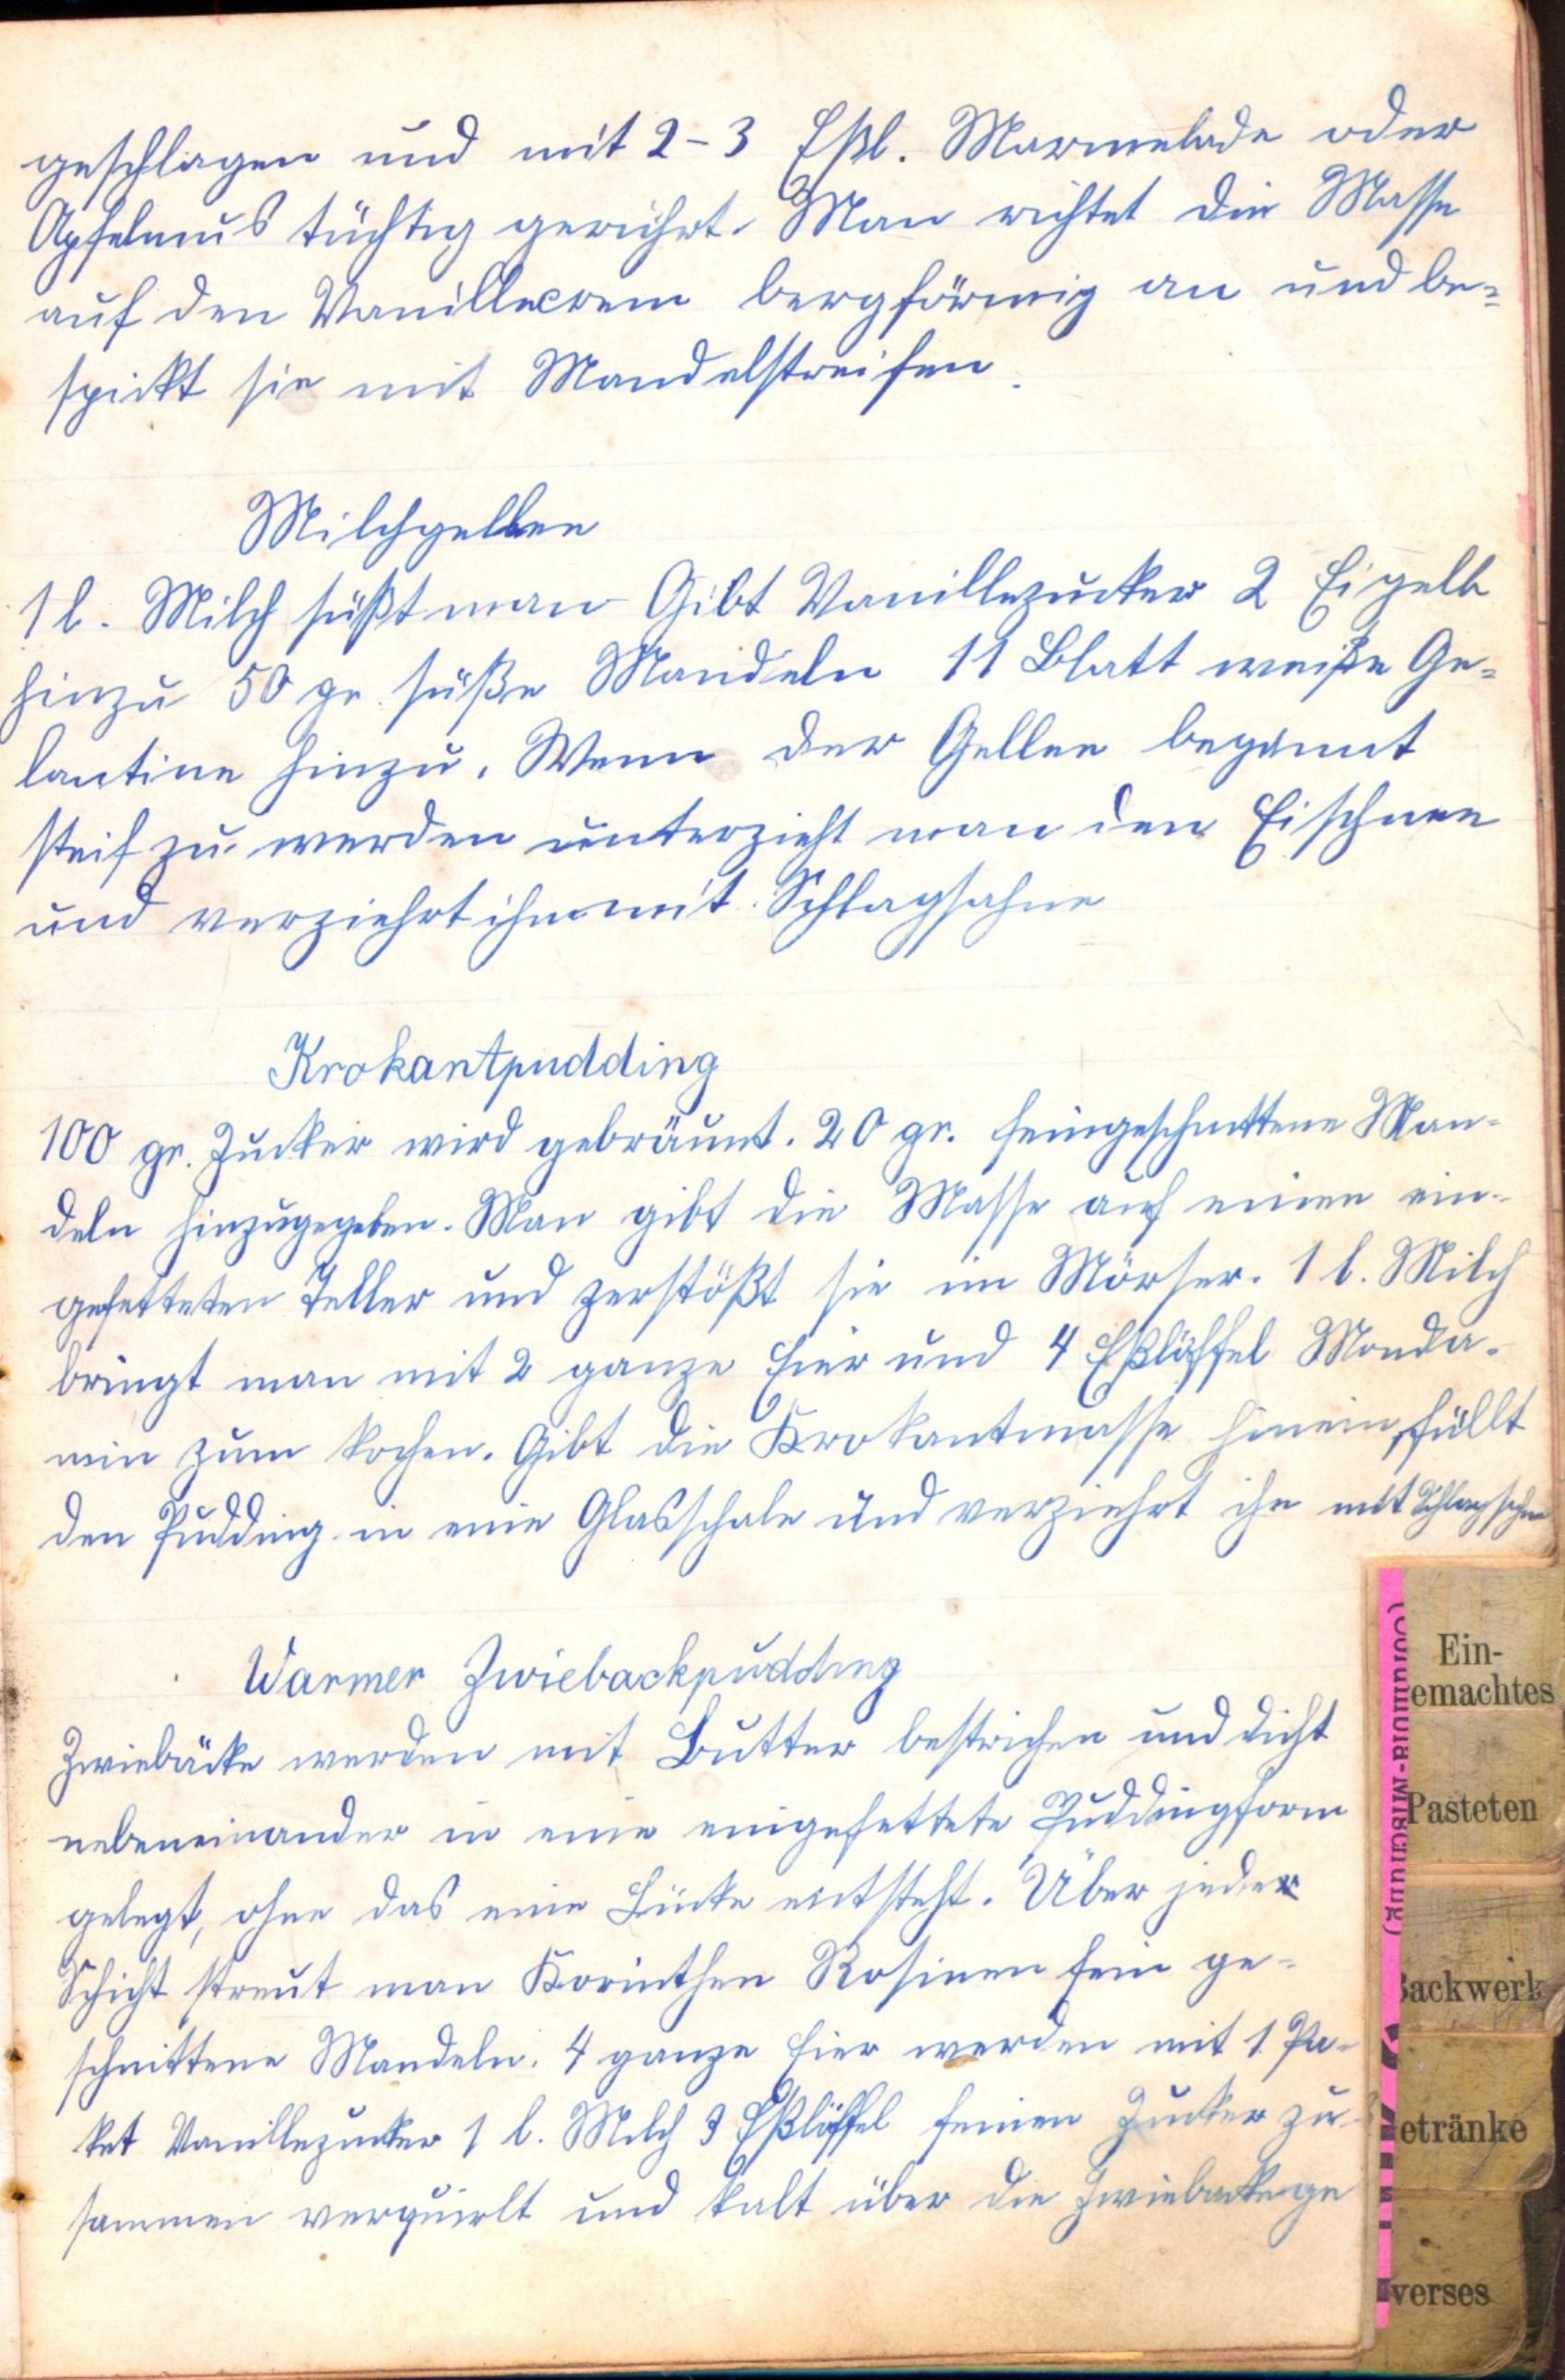 geschlagen und mit 2-3 Eßl. Marmelade oder
Apfelmus tüchtig gerührt. Man richtet die Masse
auf den Vanillecrem bergförmig an und be=
spickt sie mit Mandelstreifen.
Milchgellee
1 l. Milch süßt man Gibt Vanillezucker 2 Eigelb
hinzu 50 gr. süße Mandeln 11 Blatt weiße Ge=
lantine hinzu. Wenn der Gellee beginnt
steif zu werden unterzieht man den Eischnee
und verziehrt ihn mit Schlagsahne
Krokantpudding
100 gr. Zucker wird gebräunt. 20 gr. feingeschnittene Man-
deln hinzugegeben. Man gibt die Masse auf einen ein-
gefetteten Teller und zerstößt sie im Mörser. 1 l. Milch
bringt man mit 2 ganze Eier und 4 Eßlöffel Monda-
min zum kochen. Gibt die Krokantmasse hinein, füllt
den Pudding in eine Glasschale und verziehrt ihn mit
Warmer Zwiebackpudding
Zwiebäcke werden mit Butter bestrichen und dicht
nebeneinander in eine eingefettete Puddingform
gelegt, ohne das eine Lücke entsteht. Über jeder
Schicht streut man Korinthen Rosinen fein ge-
schnittene Mandeln. 4 ganze Eier werden mit 1 Pa-
ket Vanillezucker 1 l. Milch 3 Eßlöffel feinen Zucker zu-
sammen verquirlt und kalt über die Zwiebacke ge
Ein-
emachtes
Pasteten
Backwerk
etränke
verses